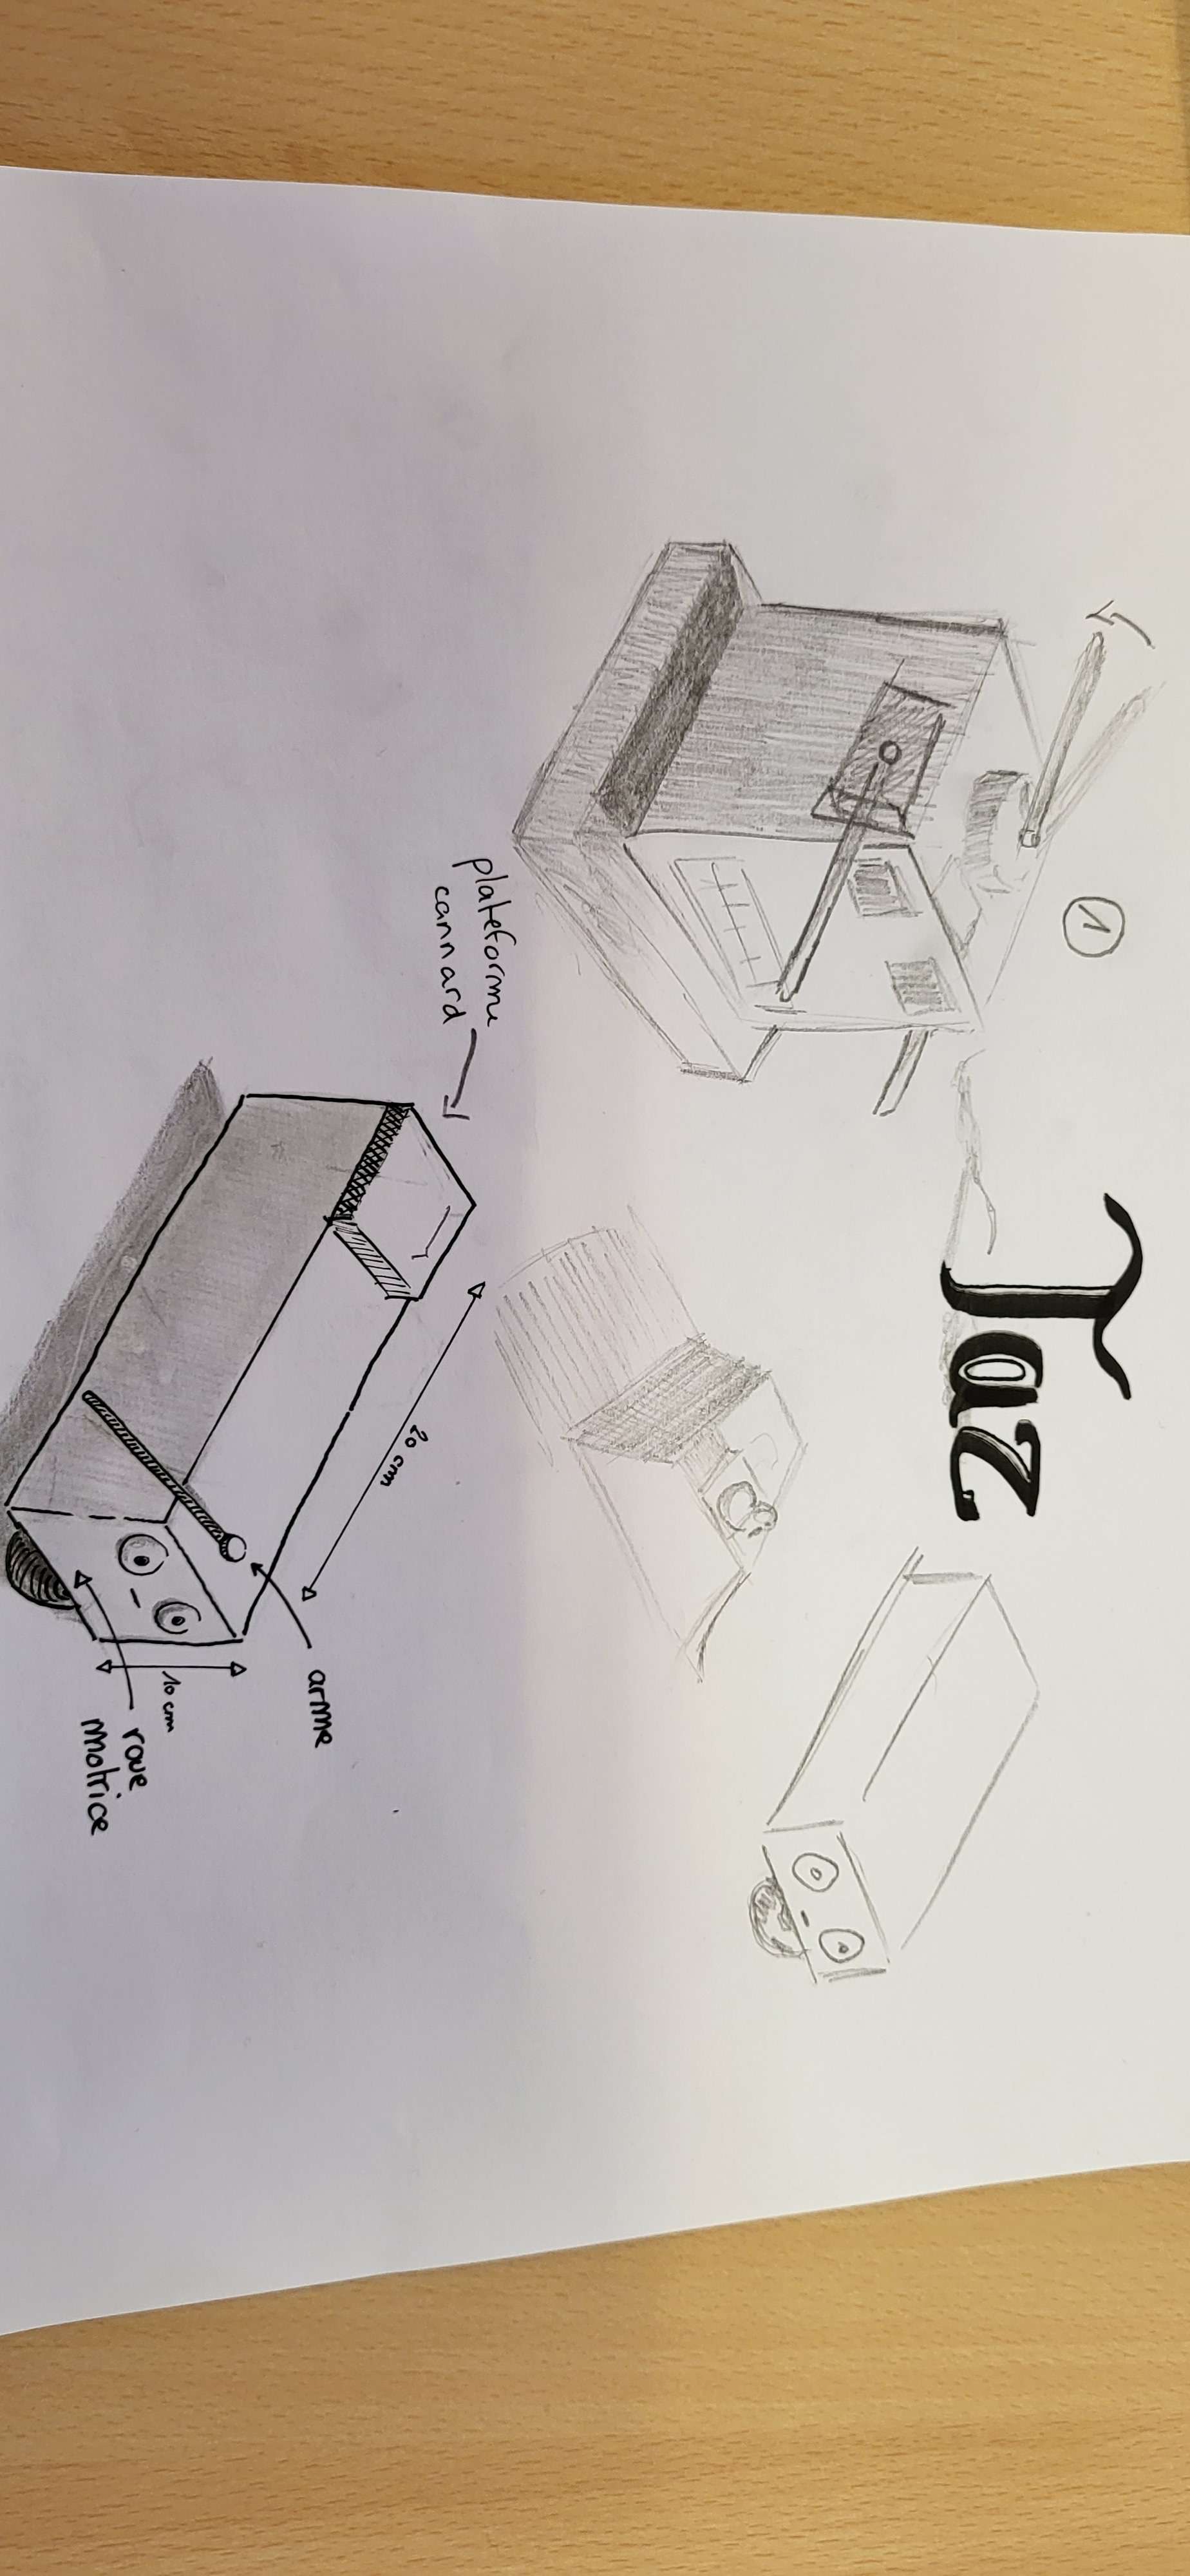 1
Taz
plateforme
cannard
20 cm
arme
10 cm
roue
motrice